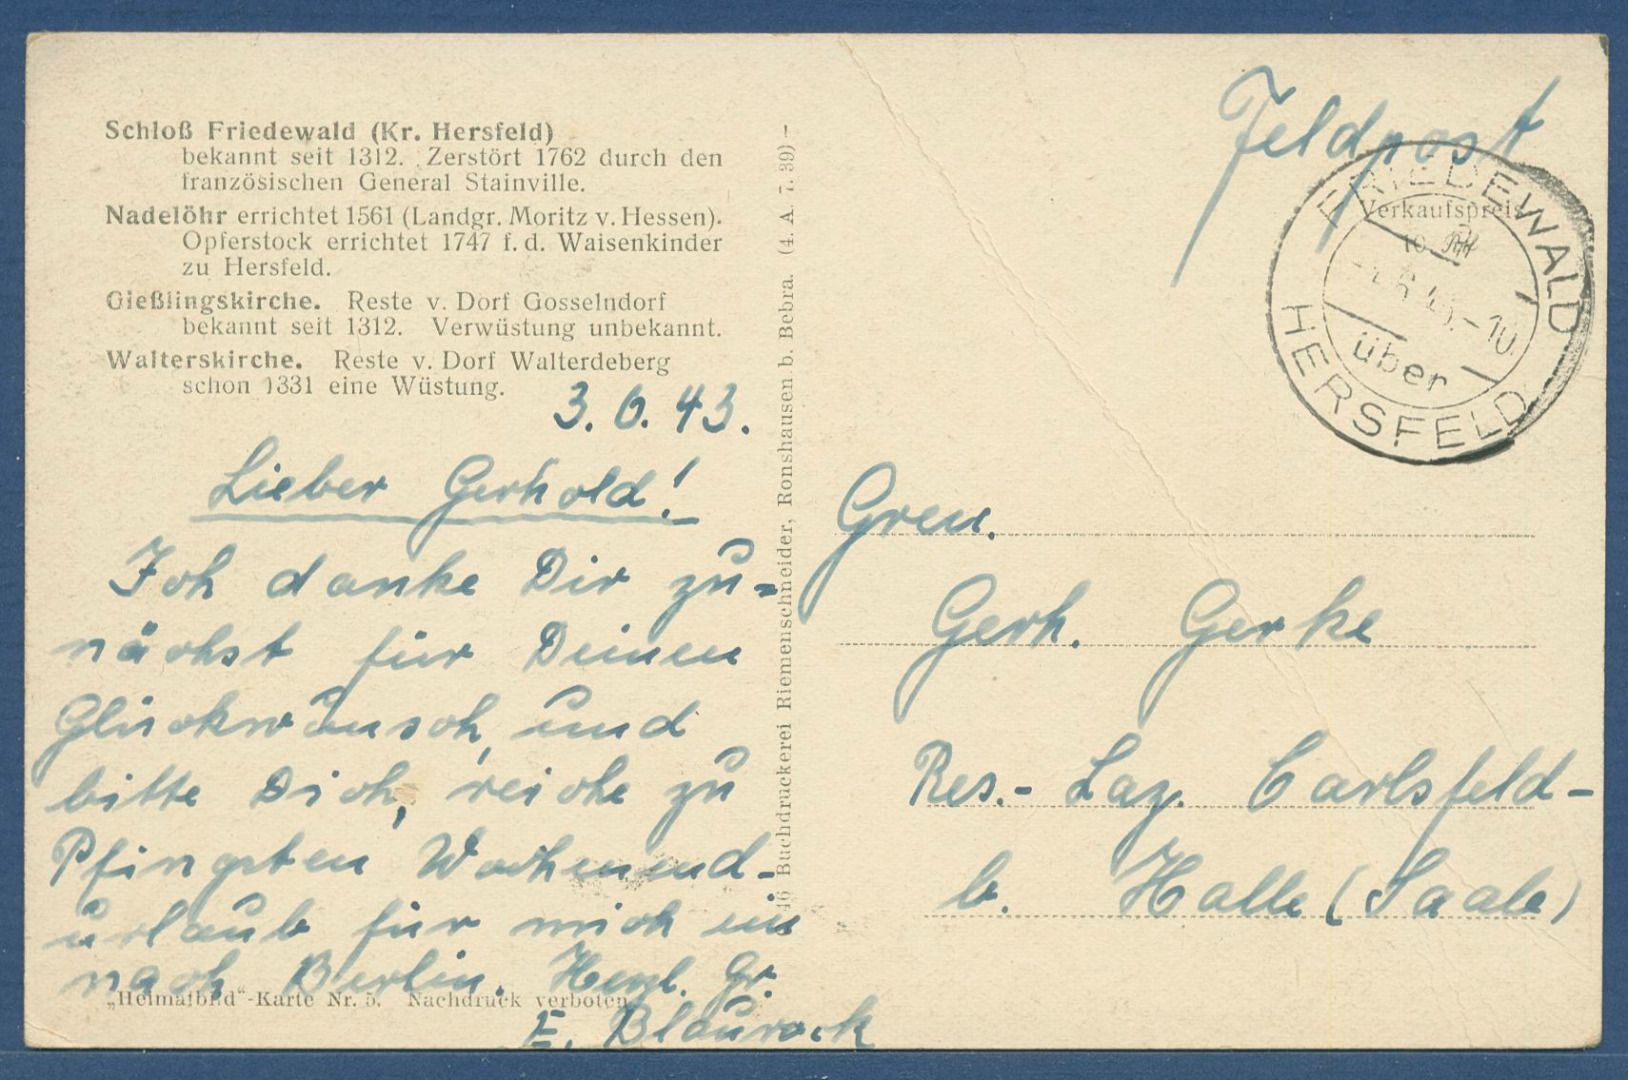 Schloß Friedewald (Kr. Hersfeld)
bekannt seit 1312. Zerstört 1762 durch den
französischen General Stainville.
Nadelöhr errichtet 1561 (Landgr. Moritz v. Hessen).
Opferstock errichtet 1747 f. d. Waisenkinder
zu Hersfeld.
Gießlingskirche. Reste v. Dorf Gosselndorf
bekannt seit 1312. Verwüstung unbekannt.
Walterskirche. Reste v. Dorf Walterdeberg
schon 1331 eine Wüstung.
3. 6. 43.
Lieber Gerhold!
Ich danke Dir zu=
nächst für Deinen
Glückwunsch, und
bitte Dich, reiche zu
Pfingsten Wochenend-
urlaub für mich ein
nach Berlin. Herzl. Gr.
E. Blaurock
„Heimatbild“-Karte Nr. 5. Nachdruck verboten
46 Buchdruckerei Riemenschneider, Ronshausen b. Bebra. (4. A. 7. 39) –
Feldpost
Verkaufspreis
10
FRIEDEWALD
über
HERSFELD
6.43.-10
Gren.
Gerh. Gerke
Res.- Laz. Carlsfeld-
b. Halle (Saale)